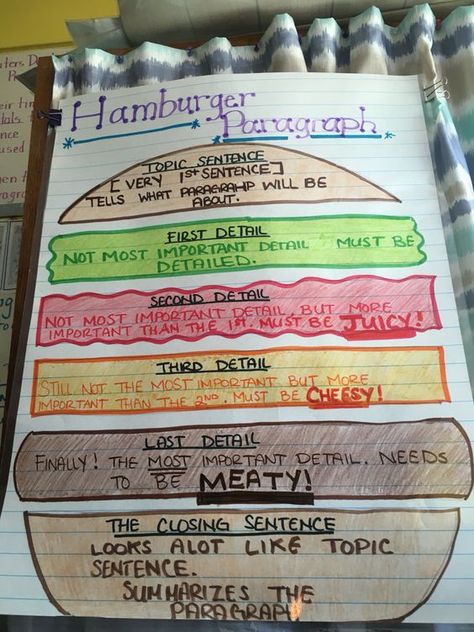 Hamburger
Paragraph
TOPIC SENTENCE
[VERY 1ST SENTENCE]
TELLS WHAT PARAGRAHP WILL BE
ABOUT.
FIRST DETAIL
NOT MOST IMPORTANT DETAIL MUST BE
DETAILED.
SECOND DETAIL
NOT MOST IMPORTANT DETAIL BUT MORE
IMPORTANT THAN THE 1ST. MUST BE JUICY!
THIRD DETAIL
STILL NOT THE MOST IMPORTANT BUT MORE
IMPORTANT THAN THE 2ND. MUST BE CHEESY!
LAST DETAIL
FINALLY! THE MOST IMPORTANT DETAIL. NEEDS
TO BE MEATY!
THE CLOSING SENTENCE
LOOKS ALOT LIKE TOPIC
SENTENCE.
SUMMARIZES THE
PARAGRAPH